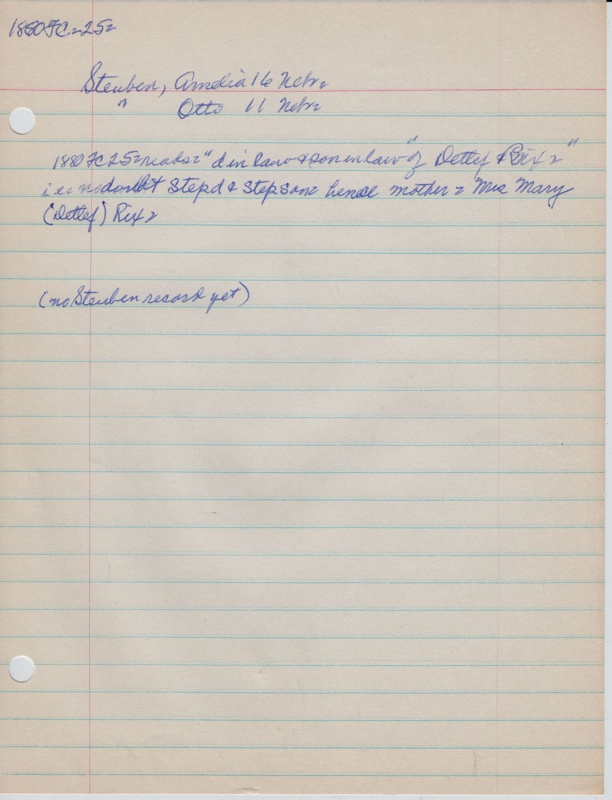 1880 FC-25=
Steuben, Amelia 16 Nebr.
" Otto 11 Nebr
1880 FC 25= reads= "d in law & son in law" of Detlef Rix="
i.e. no doubt stepd & stepson= hence mother = Mrs Mary
(Detlef) Rix=
(no Steuben record yet)